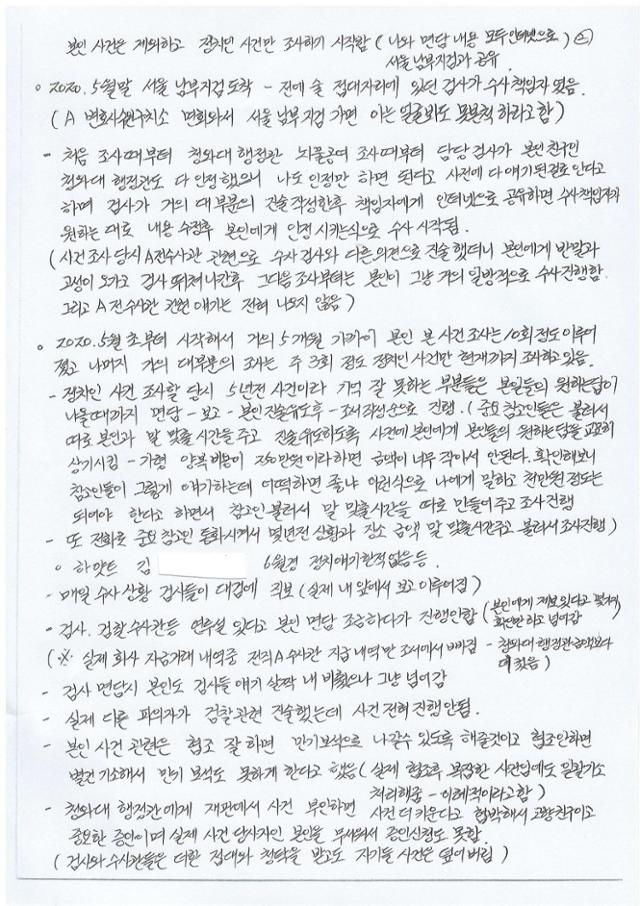 본인 사건은 제외하고 정치인 사건만 조사하기 시작함 (나와 면담 내용 모두 인터넷으로) ②
서울 남부지검과 공유.
○ 2020. 5월말 서울 남부지검 도착 - 전에 술 접대자리에 있던 검사가 수사 책임자 였음.
(A 변호사 수원구치소 면회와서 서울 남부지검 가면 아는 얼굴봐도 못본척 하라고함)
- 처음 조사때부터 청와대 행정관 뇌물공여 조사때부터 담당 검사가 본인 친구인
청와대 행정관도 다 인정했으니 나도 인정만 하면 된다고 사전에 다 얘기된걸로 안다고
하며 검사가 거의 대부분의 진술 작성한후 책임자에게 인터넷으로 공유하면 수사 책임자가
원하는 대로 내용 수정후 본인에게 인정시키는식으로 수사 시작됨.
(사건조사 당시 A전수사관 관련으로 수사 검사와 다른의견으로 진술했더니 본인에게 반말과
고성이 오가고 검사 뛰쳐나간후 그다음 조사부터는 본인이 그냥 거의 일방적으로 수사진행함.
그리고 A 전수사관 관련 얘기는 전혀 나오지 않음)
○ 2020.5월 초부터 시작해서 거의 5개월 가까이 본인 본 사건조사는 10회 정도 이루어
졌고 나머지 거의 대부분의 조사는 주 3회 정도 정치인 사건만 현재까지 조사하고 있음.
- 정치인 사건 조사할 당시 5년전 사건이라 기억 잘 못하는 부분들은 본인들의 원하는 답이
나올때까지 면담 - 보고 - 본인 진술유도후 - 조서 작성순으로 진행. (중요 참고인들은 불러서
따로 본인과 말 맞출 시간을 주고 진술유도하도록 사전에 본인에게 본인들의 원하는 답을 교묘히
상기시킴 - 가령 양복 비용이 250만원이라 하면 금액이 너무 작아서 안된다. 확인해보니
참고인들이 그렇게 얘기하는데 어떡하면 좋냐 이런식으로 나에게 말하고 천만원 정도는
되어야 한다고 하면서 참고인 불러서 말 맞출시간을 따로 만들어주고 조사 진행
- 또 전화로 중요 참고인 통화시켜서 몇년전 상황과 장소 금액 말 맞출시간주고 불러서 조사진행)
○ 하얏트 김 6월경 정치얘기한적없음 등.
- 매일 수사 상황 검사들이 대검에 직보 (실제 내 앞에서 보고 이루어짐)
- 검사. 검찰수사관등 연루설 있다고 본인 면담 조금하다가 진행안함 (본인에게 제보 있다고 몇가지
확인만 하고 넘어감
(※ 실제 회사 자금거래 내역중 전직 A수사관 지급 내역만 조서에서 빠짐 - 청와대 행정관 금액보다
더 컸음)
- 검사 면담시 본인도 검사들 얘기 살짝 내 비췄으나 그냥 넘어감
- 실제 다른 피의자가 검찰관련 진술했는데 사건 전혀 진행 안됨.
- 본인 사건 관련은 협조 잘 하면 만기보석으로 나갈수 있도록 해줄것이고 협조안하면
별건 기소해서 만기 보석도 못하게 한다고 했음 (실제 협조후 복잡한 사건임에도 일괄기소
처리해줌 - 이례적이라고 함)
- 청와대 행정관에게 재판에서 사건 부인하면 사건 더 키운다고 협박해서 고향친구이고
중요한 증인이며 실제 사건 당사자인 본인을 무서워서 증인신청도 못함.
(검사와 수사관들은 더한 접대와 청탁을 받고도 자기들 사건은 덮어버림)